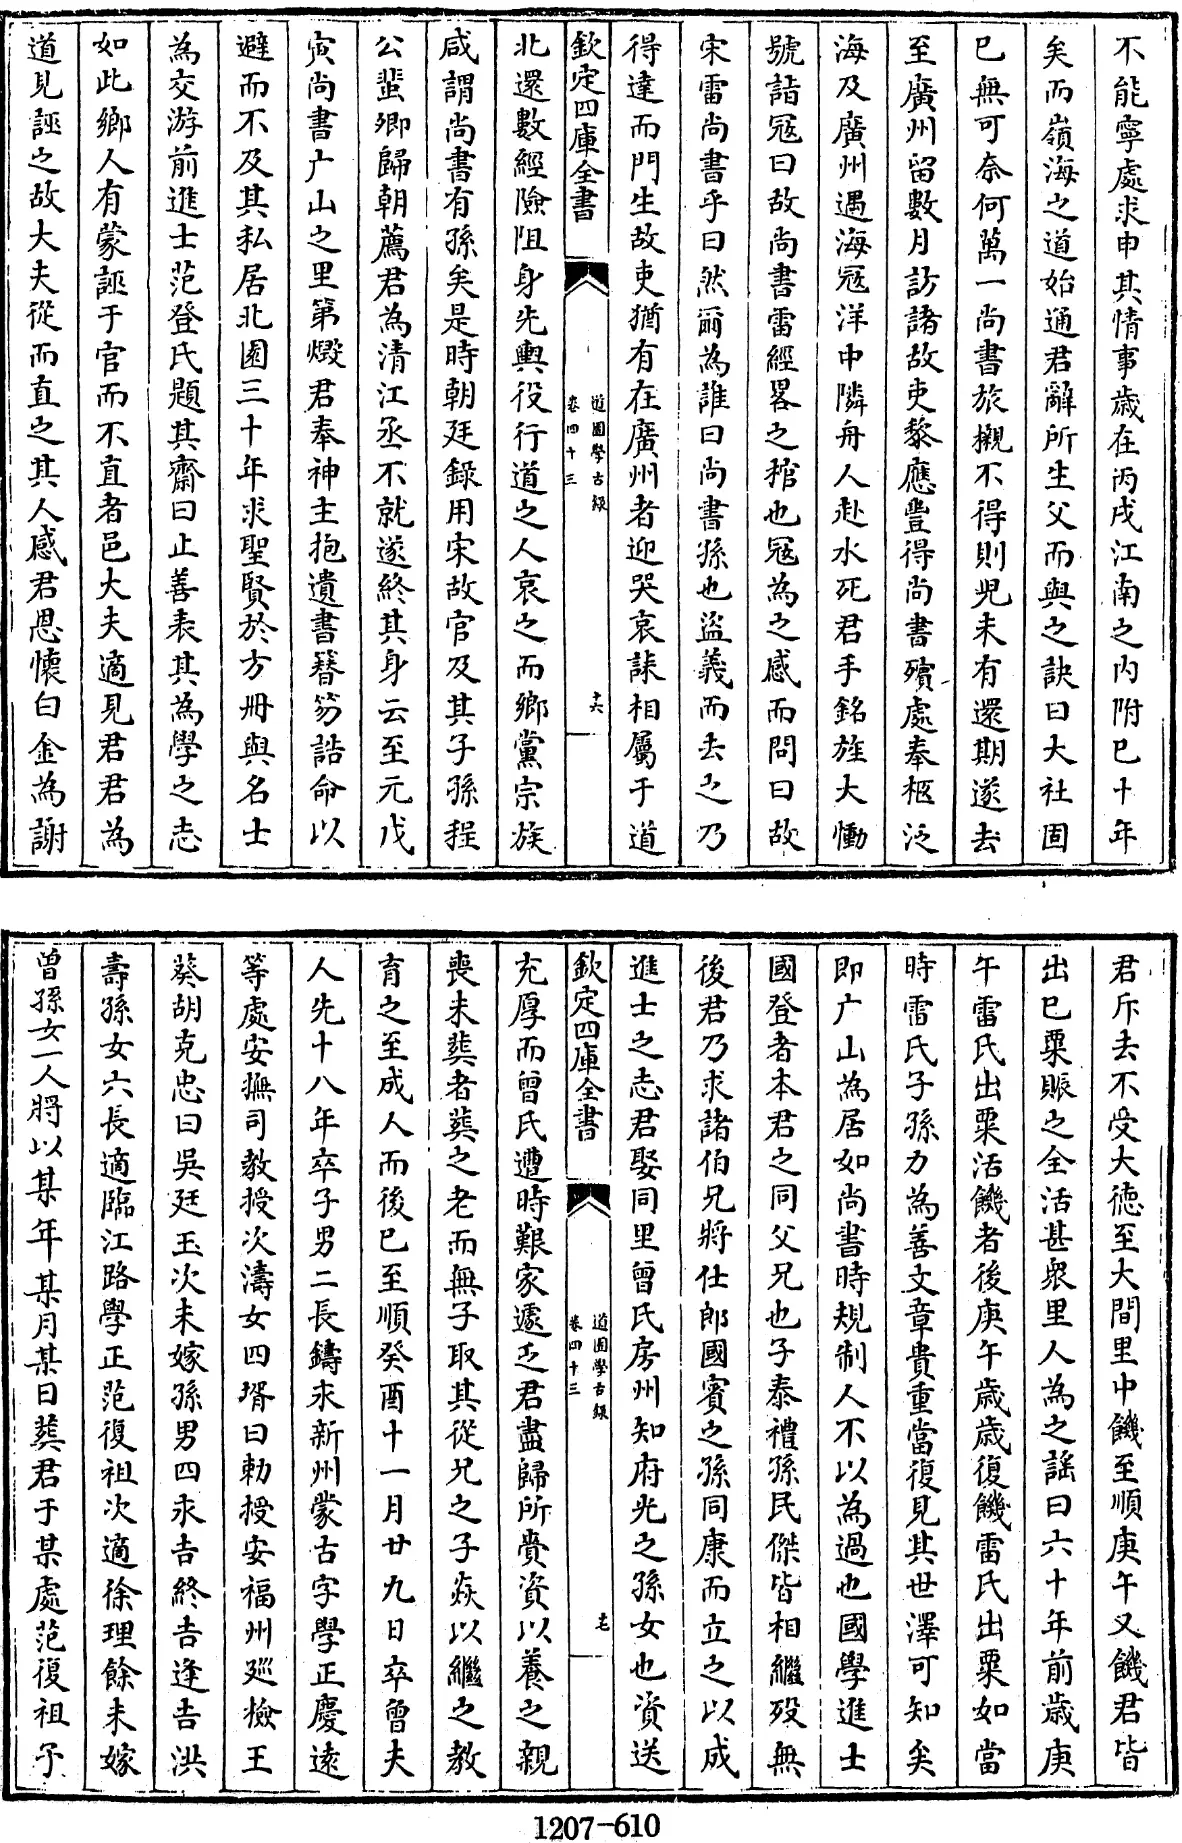 不能寧處求申其情事歲在丙戌江南之内附已十年
矣而嶺海之道始通君辭所生父而與之訣曰大社固
已無可奈何萬一尚書旅櫬不得則兇未有還期遂去
至廣州留數月訪諸故吏黎應豐得尚書殯處奉柩泛
海及廣州遇海冦洋中隣舟人赴水死君手銘旌大慟
號詣冦曰故尚書雷經畧之棺也冦為之感而問曰故
宋雷尚書乎曰然爾為誰曰尚書孫也盜義而去之乃
得達而門生故吏猶有在廣州者迎哭哀誄相屬于道
欽定四庫全書
道園學古録
卷四十三
十六
北還數經險阻身先輿役行道之人哀之而鄉黨宗族
咸謂尚書有孫矣是時朝廷錄用宋故官及其子孫程
公蜚卿歸朝薦君為清江丞不就遂終其身云至元戊
寅尚書广山之里第燬君奉神主抱遺書簪笏誥命以
避而不及其私居北園三十年求聖賢於方冊與名士
為交游前進士范登氏題其齋曰止善表其為學之志
如此鄉人有蒙誣于官而不直者邑大夫適見君君為
道見誣之故大夫從而直之其人感君恩懷白金為謝
君斥去不受大德至大間里中饑至順庚午又饑君皆
出已粟賑之全活甚衆里人為之謡曰六十年前歳庚
午雷氏出粟活饑者後庚午歳歳復饑雷氏出粟如當
時雷氏子孫力為善文章貴重當復見其世澤可知矣
即广山為居如尚書時規制人不以為過也國學進士
國登者本君之同父兄也子泰禮孫民傑皆相繼歿無
後君乃求諸伯兄將仕郎國賓之孫同康而立之以成
進士之志君娶同里曾氏房州知府光之孫女也資送
欽定四庫全書
道園學古録
卷四十三
十七
充厚而曾氏遭時艱家遽乏君盡歸所賫資以養之親
喪未葬者葬之老而無子取其從兄之子焱以繼之教
育之至成人而後已至順癸酉十一月廿九日卒曾夫
人先十八年卒子男二長鑄求新州蒙古字學正慶遠
等處安撫司教授次濤女四壻曰勅授安福州廵檢王
葵胡克忠曰吳廷玉次未嫁孫男四永吉終吉逢吉洪
壽孫女六長適臨江路學正范復祖次適徐理餘未嫁
曾孫女一人將以某年某月某日葬君于某處范復祖予
1207-610